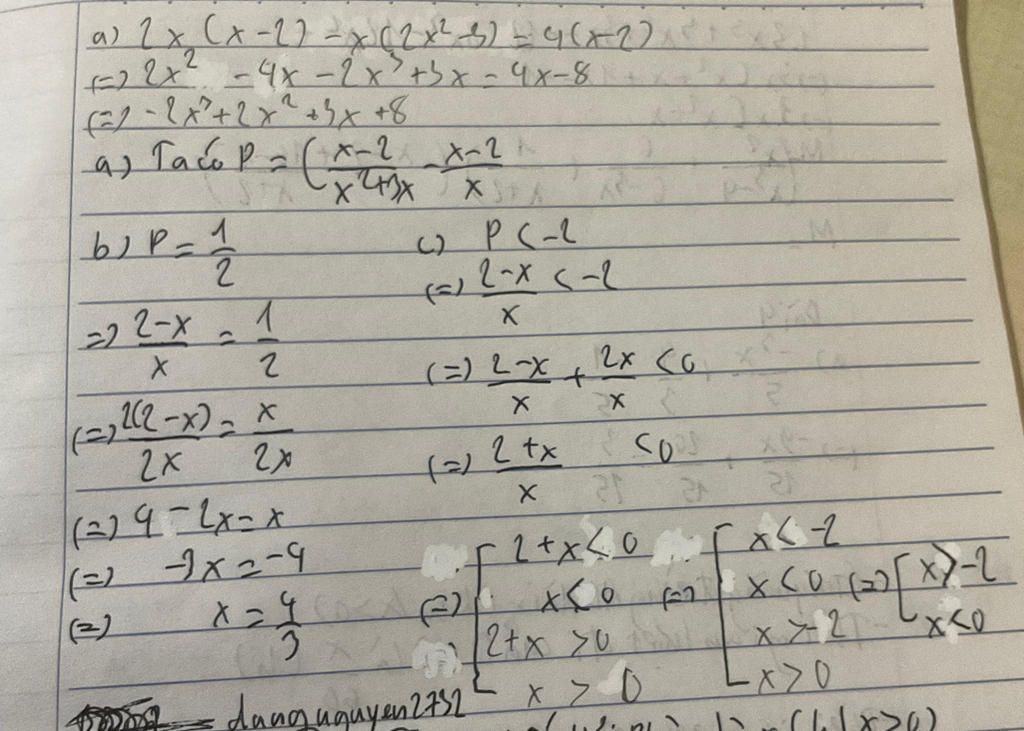 a) 2x (x-2) - x(2x² - 3) = 4(x-2)
(=) 2x² - 4x - 2x³ + 3x = 4x - 8
(=) -2x³ + 2x² + 3x + 8
a) Ta có P = (x-2/x²+3x - x-2/x
b) P = 1/2
=) 2-x/x = 1/2
(=) 2(2-x)/2x = x/2x
(=) 4 - 2x = x
(=) -3x = -4
(=) x = 4/3
c) P < -2
(=) 2-x/x < -2
(=) 2-x/x + 2x/x < 0
(=) 2+x/x < 0
(=) [ 2+x < 0 (=) [ x < -2
x < 0 x < 0 (=) [ x > -2
2+x > 0 x > -2 x < 0
x > 0 x > 0
= dangnguyen2732